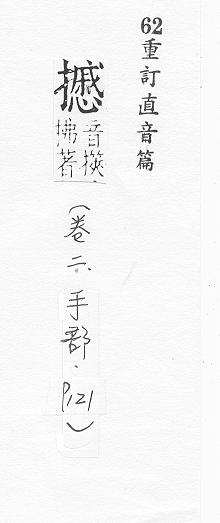 62重訂直音篇
音
拂著
（卷二、手部．P121）